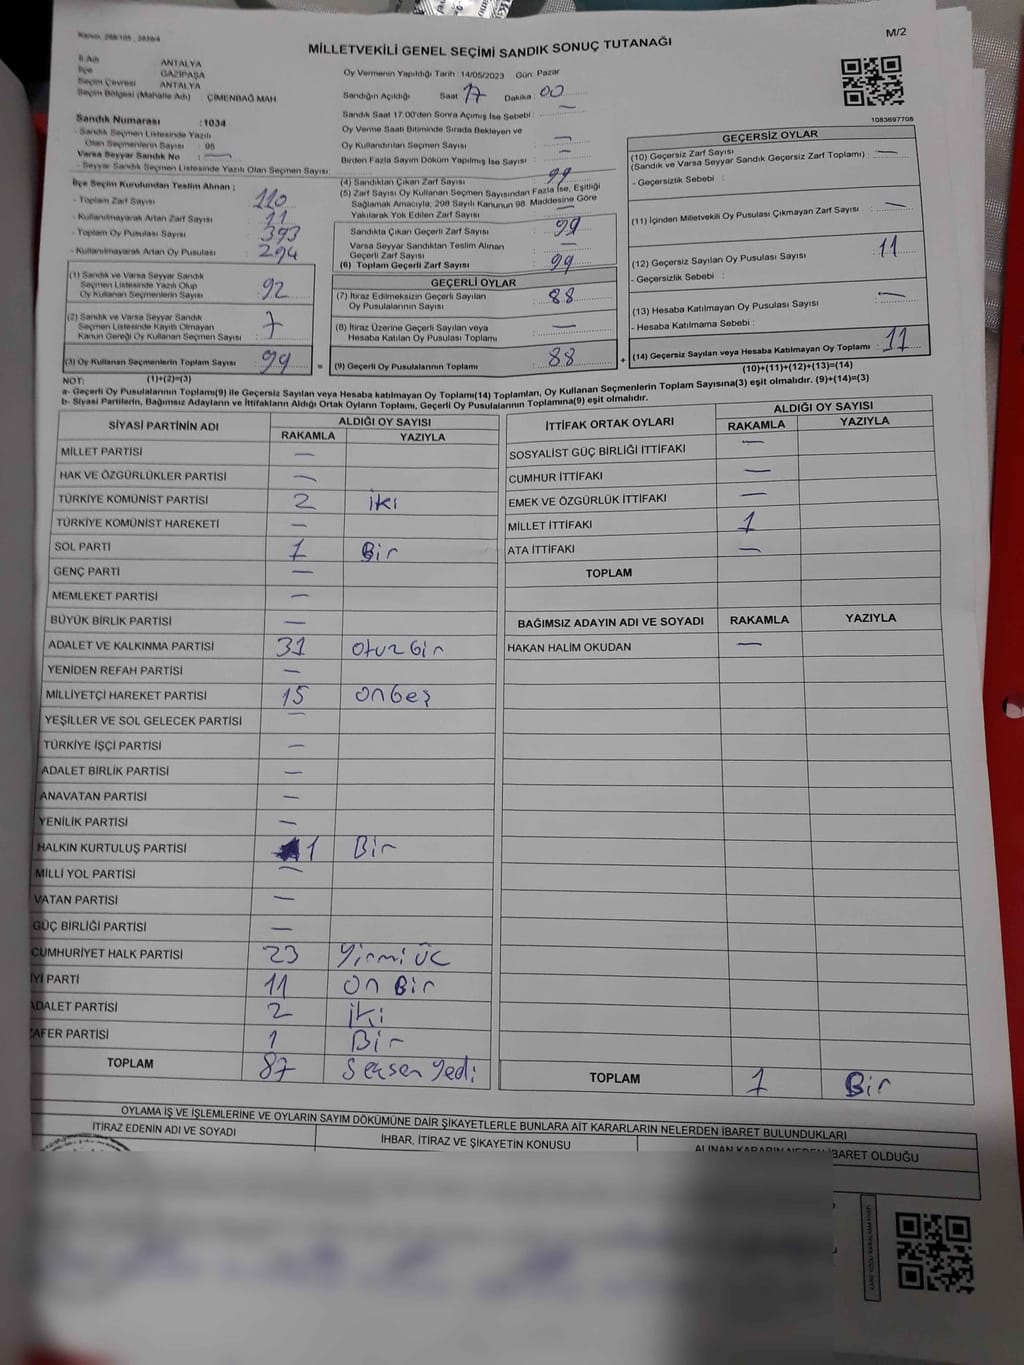 M/2
MİLLETVEKİLİ GENEL SEÇİMİ SANDIK SONUÇ TUTANAĞI
İl Adı ANTALYA
İlçe GAZİPAŞA
Seçim Çevresi ANTALYA
Seçim Bölgesi (Mahalle Adı) : ÇİMENBAĞ MAH
Oy Vermenin Yapıldığı Tarih : 14/05/2023 Gün: Pazar
Sandığın Açıldığı Saat : 17 Dakika : 00
Sandık Saat 17:00'den Sonra Açılmış İse Sebebi : —
Oy Verme Saati Bitiminde Sırada Bekleyen ve
Oy Kullandırılan Seçmen Sayısı : —
Birden Fazla Sayım Döküm Yapılmış İse Sayısı : —
1083697708
Sandık Numarası : 1034
- Sandık Seçmen Listesinde Yazılı
Olan Seçmenlerin Sayısı
Varsa Seyyar Sandık No : —
- Seyyar Sandık Seçmen Listesinde Yazılı Olan Seçmen Sayısı :
İlçe Seçim Kurulundan Teslim Alınan ;
- Toplam Zarf Sayısı : 110
- Kullanılmayarak Artan Zarf Sayısı : 11
- Toplam Oy Pusulası Sayısı : 393
- Kullanılmayarak Artan Oy Pusulası : 294
(1) Sandık ve Varsa Seyyar Sandık
Seçmen Listesinde Yazılı Olup
Oy Kullanan Seçmenlerin Sayısı : 92
(2) Sandık ve Varsa Seyyar Sandık
Seçmen Listesinde Kayıtlı Olmayan
Kanun Gereği Oy Kullanan Seçmen Sayısı : 7
(3) Oy Kullanan Seçmenlerin Toplam Sayısı : 99
(1)+(2)=(3)
(4) Sandıktan Çıkan Zarf Sayısı : 99
(5) Zarf Sayısı Oy Kullanan Seçmen Sayısından Fazla İse, Eşitliği
Sağlamak Amacıyla, 298 Sayılı Kanunun 98. Maddesine Göre
Yakılarak Yok Edilen Zarf Sayısı : —
Sandıkta Çıkan Geçerli Zarf Sayısı : 99
Varsa Seyyar Sandıktan Teslim Alınan
Geçerli Zarf Sayısı : —
(6) Toplam Geçerli Zarf Sayısı : 99
GEÇERLİ OYLAR
(7) İtiraz Edilmeksizin Geçerli Sayılan
Oy Pusulalarının Sayısı : 88
(8) İtiraz Üzerine Geçerli Sayılan veya
Hesaba Katılan Oy Pusulası Toplamı : —
= (9) Geçerli Oy Pusulalarının Toplamı : 88 +
GEÇERSİZ OYLAR
(10) Geçersiz Zarf Sayısı : —
(Sandık ve Varsa Seyyar Sandık Geçersiz Zarf Toplamı)
- Geçersizlik Sebebi :
(11) İçinden Milletvekili Oy Pusulası Çıkmayan Zarf Sayısı : —
(12) Geçersiz Sayılan Oy Pusulası Sayısı : 11
- Geçersizlik Sebebi :
(13) Hesaba Katılmayan Oy Pusulası Sayısı : —
- Hesaba Katılmama Sebebi :
(14) Geçersiz Sayılan veya Hesaba Katılmayan Oy Toplamı : 11
(10)+(11)+(12)+(13)=(14)
NOT:
a- Geçerli Oy Pusulalarının Toplamı(9) ile Geçersiz Sayılan veya Hesaba katılmayan Oy Toplamı(14) Toplamları, Oy Kullanan Seçmenlerin Toplam Sayısına(3) eşit olmalıdır. (9)+(14)=(3)
b- Siyasi Partilerin, Bağımsız Adayların ve İttifakların Aldığı Ortak Oyların Toplamı, Geçerli Oy Pusulalarının Toplamına(9) eşit olmalıdır.
SİYASİ PARTİNİN ADI ALDIĞI OY SAYISI
RAKAMLA YAZIYLA
MİLLET PARTİSİ —
HAK VE ÖZGÜRLÜKLER PARTİSİ —
TÜRKİYE KOMÜNİST PARTİSİ 2 iki
TÜRKİYE KOMÜNİST HAREKETİ —
SOL PARTİ 1 Bir
GENÇ PARTİ —
MEMLEKET PARTİSİ —
BÜYÜK BİRLİK PARTİSİ —
ADALET VE KALKINMA PARTİSİ 31 otuzbir
YENİDEN REFAH PARTİSİ —
MİLLİYETÇİ HAREKET PARTİSİ 15 onbeş
YEŞİLLER VE SOL GELECEK PARTİSİ —
TÜRKİYE İŞÇİ PARTİSİ —
ADALET BİRLİK PARTİSİ —
ANAVATAN PARTİSİ —
YENİLİK PARTİSİ —
HALKIN KURTULUŞ PARTİSİ 1 Bir
MİLLİ YOL PARTİSİ —
VATAN PARTİSİ —
GÜÇ BİRLİĞİ PARTİSİ —
CUMHURİYET HALK PARTİSİ 23 Yirmi üc
İYİ PARTİ 11 on Bir
ADALET PARTİSİ 2 iki
ZAFER PARTİSİ 1 Bir
TOPLAM 87 Seksen Yedi
İTTİFAK ORTAK OYLARI ALDIĞI OY SAYISI
RAKAMLA YAZIYLA
SOSYALİST GÜÇ BİRLİĞİ İTTİFAKI —
CUMHUR İTTİFAKI —
EMEK VE ÖZGÜRLÜK İTTİFAKI —
MİLLET İTTİFAKI 1
ATA İTTİFAKI —
TOPLAM
BAĞIMSIZ ADAYIN ADI VE SOYADI RAKAMLA YAZIYLA
HAKAN HALİM OKUDAN —
TOPLAM 1 Bir
OYLAMA İŞ VE İŞLEMLERİNE VE OYLARIN SAYIM DÖKÜMÜNE DAİR ŞİKAYETLERLE BUNLARA AİT KARARLARIN NELERDEN İBARET BULUNDUKLARI
İTİRAZ EDENİN ADI VE SOYADI
İHBAR, İTİRAZ VE ŞİKAYETİN KONUSU
ALINAN KARARIN NEDEN İBARET OLDUĞU